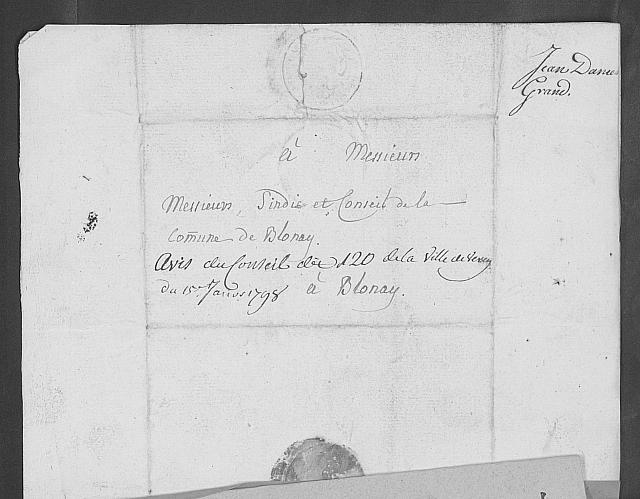 Jean Daniel
Grand.
à Messieurs
Messieurs, Sindic et Conseil de la
Comune de Blonay.
Avis du Conseil des 120 de la Ville de Vevey
du 15e Janvr. 1798
à Blonay.